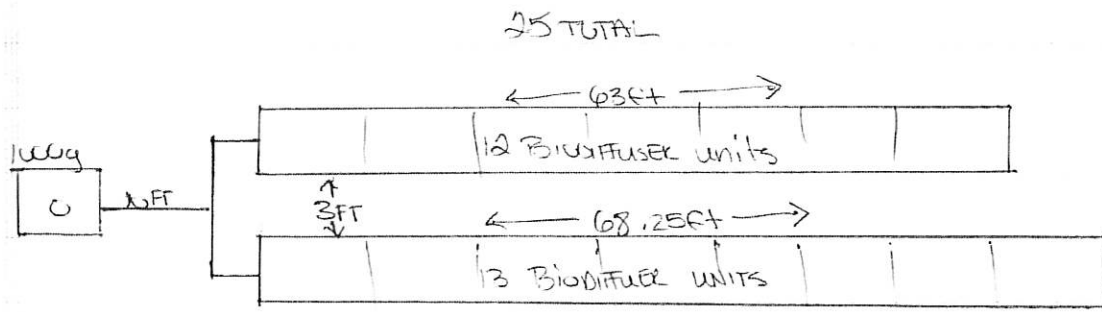 25 TOTAL
63ft
1000g
12 BIODIFFUSER units
FT
3FT
68.25ft
13 BIODIFFUER UNITS